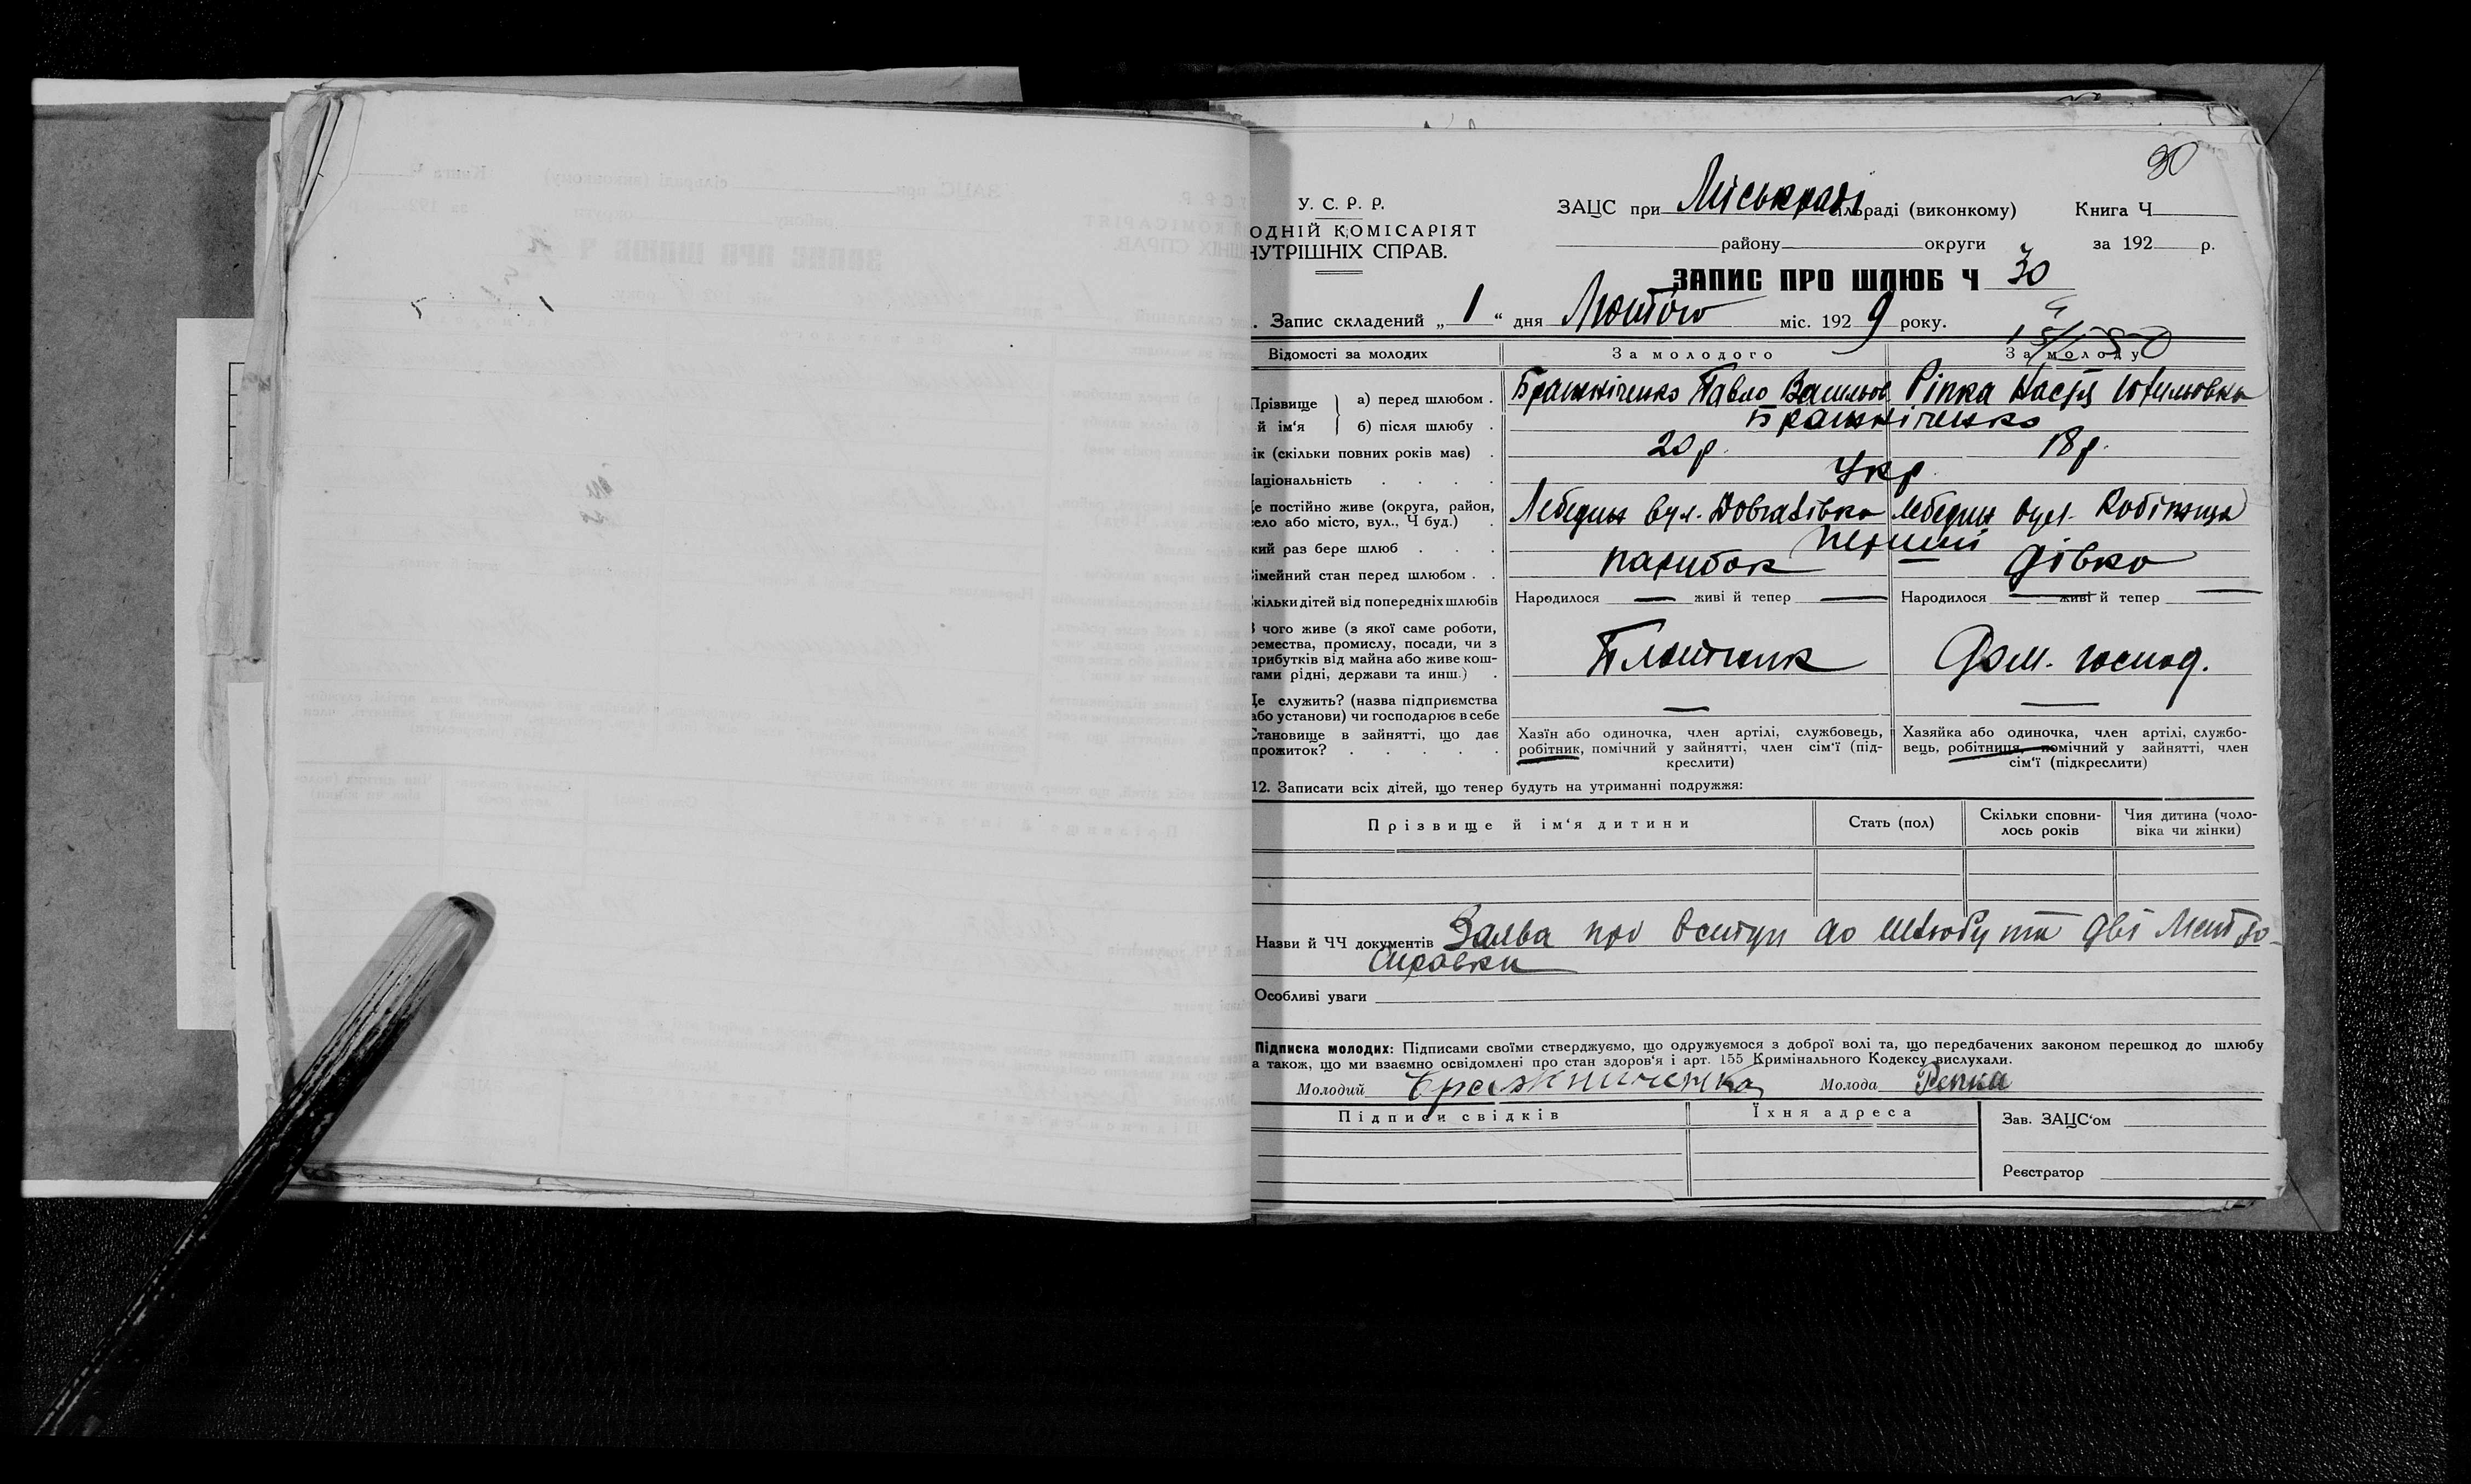 30
У. С. Р. Р.
ОДНІЙ КОМІСАРІЯТ
НУТРІШНІХ СПРАВ.
ЗАЦС при Міськраді сільраді (виконкому) Книга Ч
району округи за 192 р.
ЗАПИС ПРО ШЛЮБ Ч 30
. Запис складений „ 1 “ дня Лютого міс. 192 9 року.
Відомості за молодих За молодого За молоду
Прізвище й ім‘я
а) перед шлюбом . Бражніченко Павло Васильов Ріпка Настя
б) після шлюбу . Бражніченко
ік (скільки повних років має) . 20 р. 18 р.
Національність . . . . Укр.
е постійно живе (округа, район,
село або місто, вул., Ч буд.) . Лебедин вул. Лебедин вул.
кий раз бере шлюб . . . перший
імейний стан перед шлюбом . . парубок дівка
кільки дітей від попередніх шлюбів Народилося — живі й тепер — Народилося — живі й тепер —
З чого живе (з якої саме роботи,
ремества, промислу, посади, чи з
прибутків від майна або живе кош-
тами рідні, держави та инш.) . Плотник Дом. господ.
Де служить? (назва підприємства
або установи) чи господарює в себе — —
Становище в зайнятті, що дає
прожиток? . . . . .
Хазїн або одиночка, член артілі, службовець,
робітник, помічний у зайнятті, член сім‘ї (під-
креслити)
Хазяйка або одиночка, член артілі, службо-
вець, робітниця, помічний у зайнятті, член
сім‘ї (підкреслити)
12. Записати всіх дітей, що тепер будуть на утриманні подружжя:
Прізвище й ім‘я дитини Стать (пол) Скільки сповни-
лось років Чия дитина (чоло-
віка чи жінки)
Назви й ЧЧ документів Заява про вступ до шлюбу та дві
справки
Особливі уваги
Підписка молодих: Підписами своїми стверджуємо, що одружуємося з доброї волі та, що передбачених законом перешкод до шлюбу
а також, що ми взаємно освідомлені про стан здоров‘я і арт. 155 Кримінального Кодексу вислухали.
Молодий Бражниченко Молода Репка
Підписи свідків Їхня адреса Зав. ЗАЦС‘ом
Реєстратор